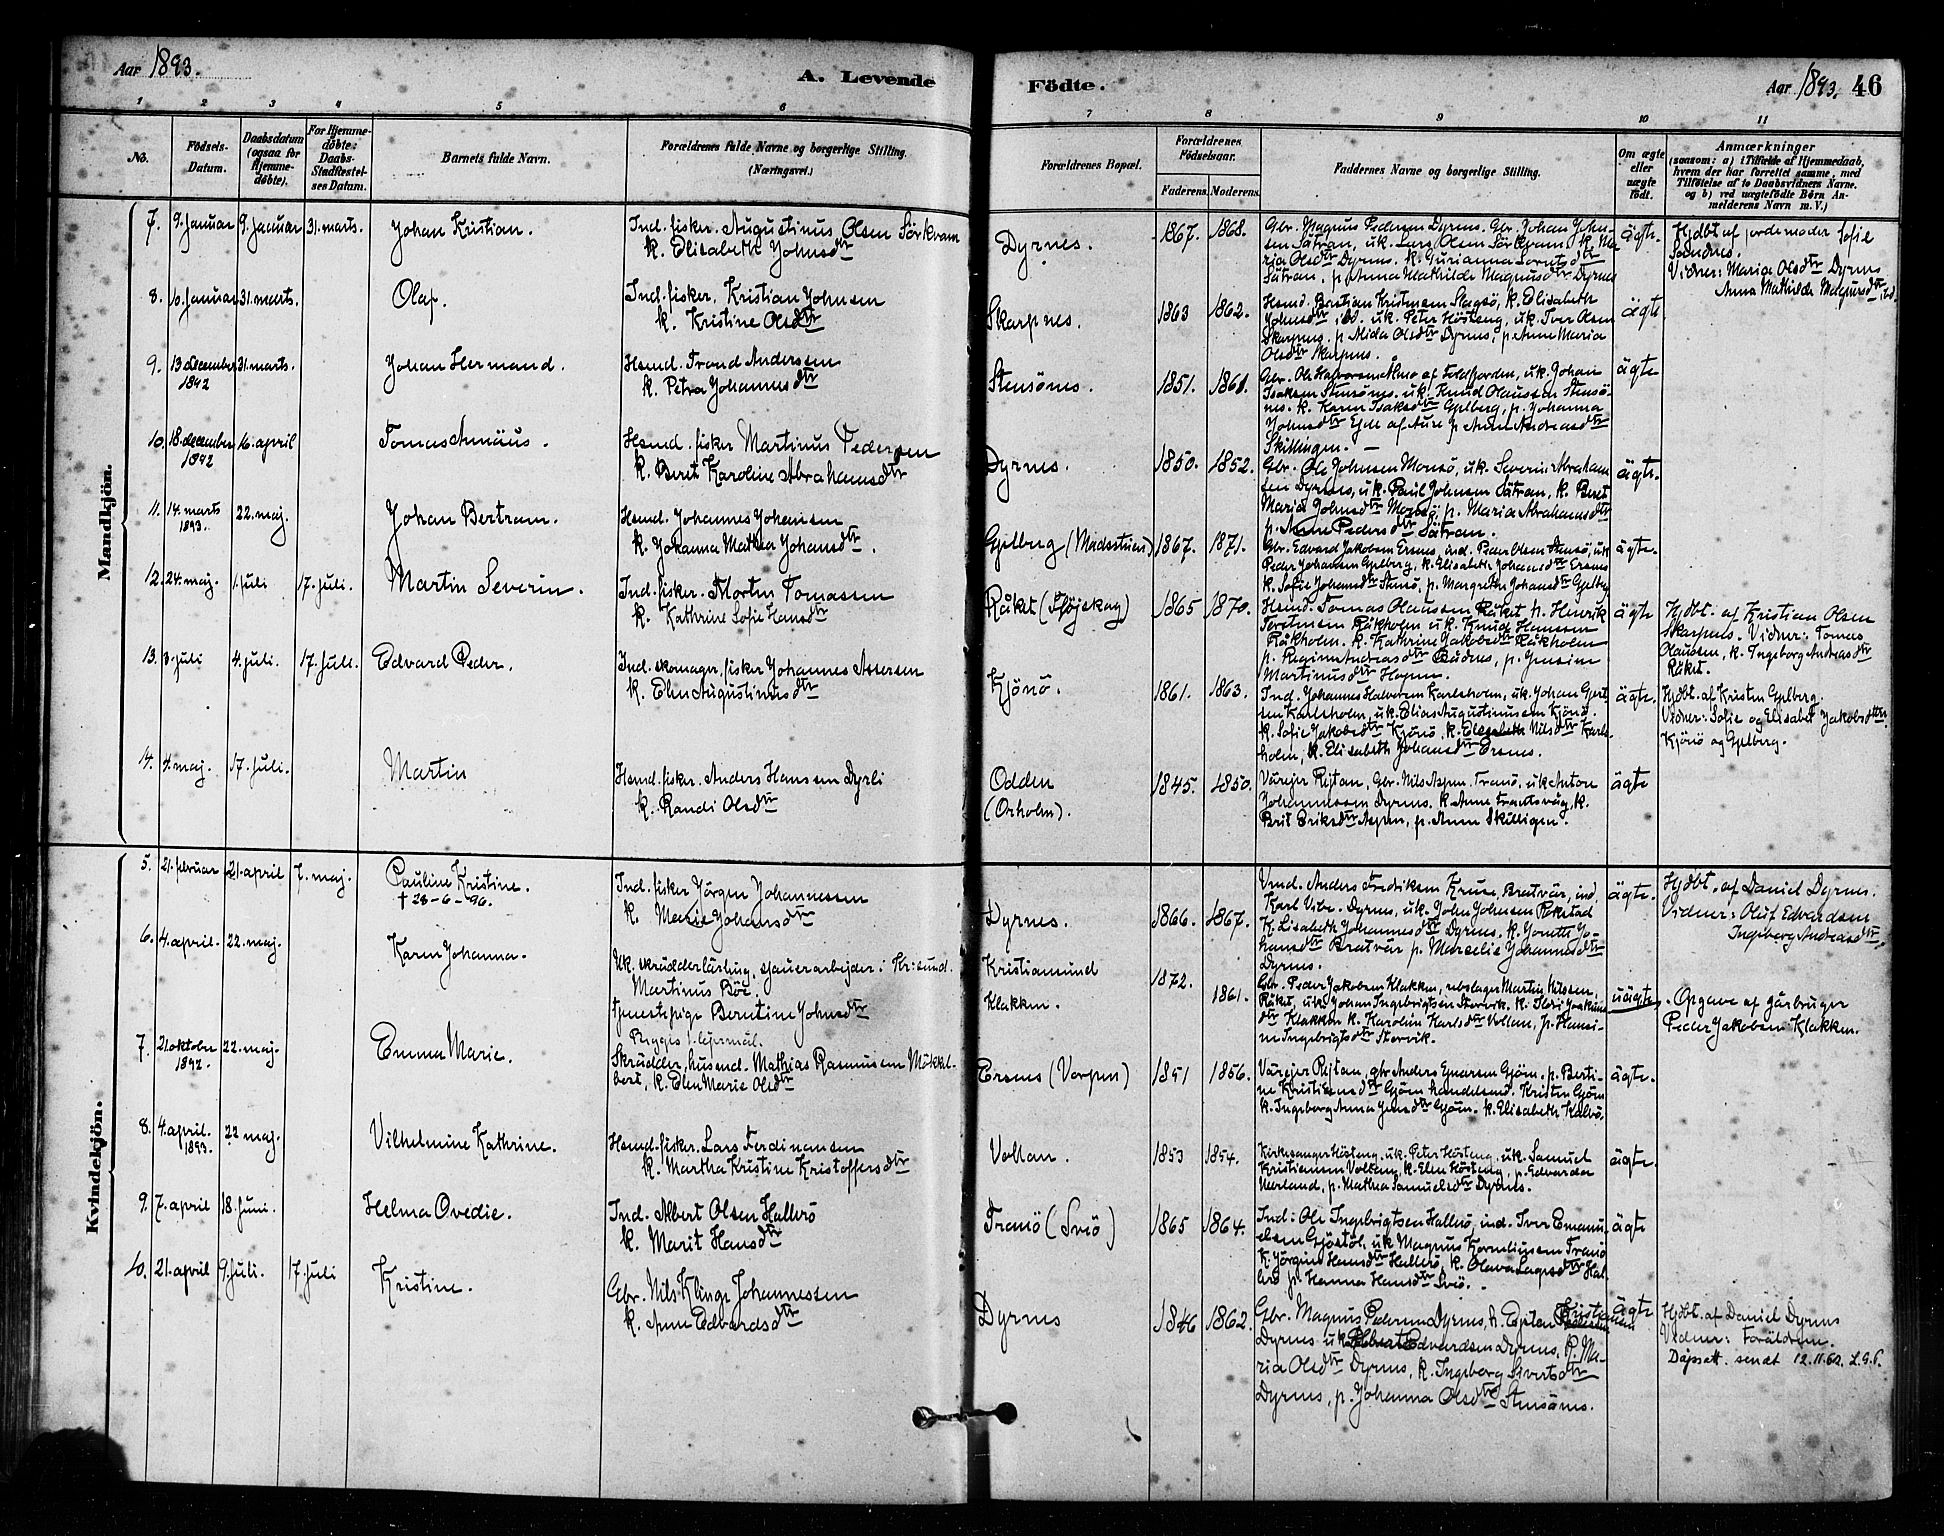 Aar 1893.
A. Levende
Födte.
Aar 1893. 46
1 2 3 4 5 6
7 8 9 10 11
No.
Födsels-
Datum.
Daabsdatum
(ogsaa for
Hjemme-
döbte).
For Hjemme-
döbte:
Daabs-
Stadfæstel-
ses Datum.
Barnets fulde Navn.
Forældrenes fulde Navne og borgerlige Stilling.
(Næringsvei.)
Forældrenes Bopæl.
Forældrenes
Födselsaar.
Faderens. Moderens.
Faddernes Navne og borgerlige Stilling.
Om ægte
eller
uægte
født.
Anmærkninger
(saasom: a) i Tilfælde af Hjemmedaab,
hvem der har forrettet samme, med
Tilföielse af to Daabsvidners Navne.
og b) ved uægtefödte Börn An-
melderens Navn m. V.)
Mandkjön.
7. 9. Januar 9. Januar 31. marts. Johan Kristian.
Ind. fisker. Augustinus Olsen Sörkvam
k. Elisabeth Johnsdtr
Dyrnes. 1867. 1868.
Gbr. Magnus Pedersen Dyrnes. Gbr. Johan John-
sen Sätran, uk. Lars Olsen Sörkvam, k. Ma-
ria Olsdtr Dyrnes. k. Gurianna Lorntsdtr
Sätran, p. Anna Mathilde Magnusdtr Dyrnes
ägte.
Hjdbt af jordemoder Sofie
Sandnes.
Vidner: Maria Olsdtr Dyrnes
Anna Mathilde Magnusdtr ibd.
8. 10. Januar 31. marts. Olaf.
Ind. fisker. Kristian Johnsen
k. Kristine Olsdtr
Skarpnes. 1863 1862.
Hsmd. Bertian Kristensen Slagsö, k. Elisabeth
Johnsdtr ibd. uk. Peter Hösteng, uk. Iver Olsen
Skarpnes. p. Alida Olsdtr Dyrnes, p. Anne Maria
Olsdtr Skarpnes.
ägte.
9. 13 december 1892 31. marts. Johan Hermand.
Hsmd. Trond Andersen
k. Petra Johannesdtr
Stensönes. 1851. 1861.
Gbr. Ole Halvorsen Almo af Foldfjorden, uk. Johan
Isaksen Stensönes. uk. Knud Olaussen Stensö-
nes. k. Karen Isaksdtr Gjelberg, p. Johanna
Johnsdtr Ejde af Aure p. Anne Andreasdtr
Skillingen. —
ägte
10. 18. december 1892 16. april Tomas Amäus.
Hsmd. fisker Martinus Pedersen
k. Berit Karoline Abrahamsdtr
Dyrnes. 1850. 1852.
Gbr. Ole Johnsen Monsö, uk. Severin Abraham-
sen Dyrnes, uk. Paul Johnsen Sätran, k. Beret
Maria Johnsdtr Monsö, p. Maria Abrahamsdtr
p. Anne Pedersdtr Sätran.
ägte.
11. 14. marts 1893. 22. maj. Johan Bertram.
Hsmd. Johannes Johansen
k. Johanna Mathea Johansdtr.
Gjelberg (Madsstuen) 1867. 1871.
Gbr. Edvard Jakobsen Ersnes, ind. Peder Olsen Stensö, uk
Peder Johansen Gjelberg, k. Elisabeth Johansdtr Ersnes
k. Sofie Johansdtr Stensö, p. Margrethe Johansdtr Gjelberg
ägte.
12. 24. maj. 1. juli 17. juli. Martin Severin.
Ind. fisker. Morten Tomasen
k. Kathrine Sofie Hansdtr
Råket (Flöjskag) 1865 1870.
Hsmd. Tomas Olaussen Råket p. Henrik
Råkholm uk. Knud Hanssen
Råkholm. k. Kathrine Jakobsdtr Råkholm
p. Regine Andreasdtr
Martinusdtr
ägte
Hjdbt. af Kristian Olsen
Skarpnes. Vidner: Tomas
Olaussen, k. Ingeborg Andreasdtr
Råket.
13. 3. juli 4. juli. 17. juli. Edvard Peder.
Ind. skomager, fisker Johannes Assersen
k. Elen Augustinusdtr
Kjönö. 1861. 1863.
Ind. Johannes Halvorsen Karlsholm, uk. Johan Gjert-
sen Karlsholm, uk. Elias Augustinussen Kjönö
k. Sofie Jakobsdtr Kjönö, k. Elisabeth Nilsdtr Karls-
holm, k. Elisabeth Johansdtr Ersnes.
ägte.
Hjdbt. af Kristen Gjelberg.
Vidner: Sofie og Elisabet Jakobsdtre
Kjönö og Gjelberg.
14. 4. maj. 17. juli. Martin
Hsmd. fisker. Anders Hansen Dyrli
k. Randi Olsdtr
Odden
(Orholm). 1845. 1850.
Värejer Rejtan, Gbr. Nils Aspen Tranö, uk Anton
Johannessen Dyrnes. k Anne Frantsväg, k.
Brit Eriksdtr Aspen, p. Anne Skillingen.
ägte
Kvindekjön.
5. 21. februar 21. april 7. maj. Pauline Kristine.
† 28-6-96.
Ind. fisker Jörgen Johannessen
k. Marie Johansdtr
Dyrnes. 1866. 1867.
Vmd. Anders Fredriksen Kruse Bratvär, ind.
Karl Vibe. Dyrnes, uk. John Johnsen Rokstad
K. Lisabeth Johannesdtr Dyrnes. k. Joneth Jo-
hansdtr Bratvär p. Marselie Johannesdtr
Dyrnes.
ägte.
Hjdbt. af Daniel Dyrnes.
Vidner: Oluf Edvardsen
Ingeborg Andreasdtr
6. 4. april. 22. maj. Karen Johanna.
Uk. skrädderlärling, sjauerarbejder i Kr:sund.
Martinus Böe.
tjenestepige Berntine Johnsdtr
Begges 1. lejermål.
Kristiansund
Klakken. 1872. 1861.
Gbr. Peder Jakobsen Klakken, rebslager Martin Nilsen,
Råket, uk. Johan Ingebrigtsen Storvik. k.
dtr Klakken k. Karoline Karlsdtr Vollan, p. Hansi-
ne Ingebrigtsdtr Storvik.
uägte.
Opgave af gårbruger
Peder Jakobsen Klakken.
7. 21. oktober 1892. 22. maj. Emma Marie.
Skrädder, husmd. Mathias Rasmussen Mökkel-
bert, k. Elen Marie Olsdtr
Ersnes (Vorpen) 1851 1856.
Värejer Rejtan, gbr Anders Ejnarsen Gjöm. p. Berti-
ne Kristiensdtr Gjöm handelsmd. Kristen Gjöm
k. Ingeborg Anna Jensdtr Gjöm. k. Elisabeth Kalvö.
ägte.
8. 4. april. 1893. 22 maj. Vilhelmine Kathrine.
Hsmd. fisker. Lars Ferdinansen
k. Martha Kristine Kristoffersdtr
Vollan. 1853 1854.
Kirkesanger Hösteng. uk. Peter Hösteng. uk. Samuel
Kristiansen Vollan, k. Elen Hösteng, p. Edvarda
Nerland, p. Mathea Samuelsdtr Dyrnes.
ägte.
9. 7. april 18. juni. Helma Ovedie.
Ind. Albert Olsen Hallerö
k. Marit Hansdtr
Tranö (Sviö) 1865 1864.
Ind: Ole Ingebrigtsen Hallerö, ind. Iver Emanu-
elsen Gjöstöl, uk. Magnus Korneliussen Tranö
K. Jörgine Hansdtr Hallerö, k. Olava Larsdtr Hal-
lerö p. Hanna Hansdtr Sviö.
ägte
10. 21. april 9. juli. 17. juli Kristine.
Gbr. Nils Klinge Johannessen
k. Anne Edvardsdtr
Dyrnes 1846 1862.
Gbr. Magnus Pedersen Dyrnes, h. Espen Kristiansen
Dyrnes uk. Edvardsen Dyrnes, K. Ma-
ria Olsdtr Dyrnes, k. Ingeborg Sivertsdtr
Dyrnes, p. Johanna Olsdtr Stensönes.
ägte
Hjdbt. af Daniel Dyrnes
Vidner: Foräldrene.
Dåpsatt. sendt 12.11.62. L.G.S.